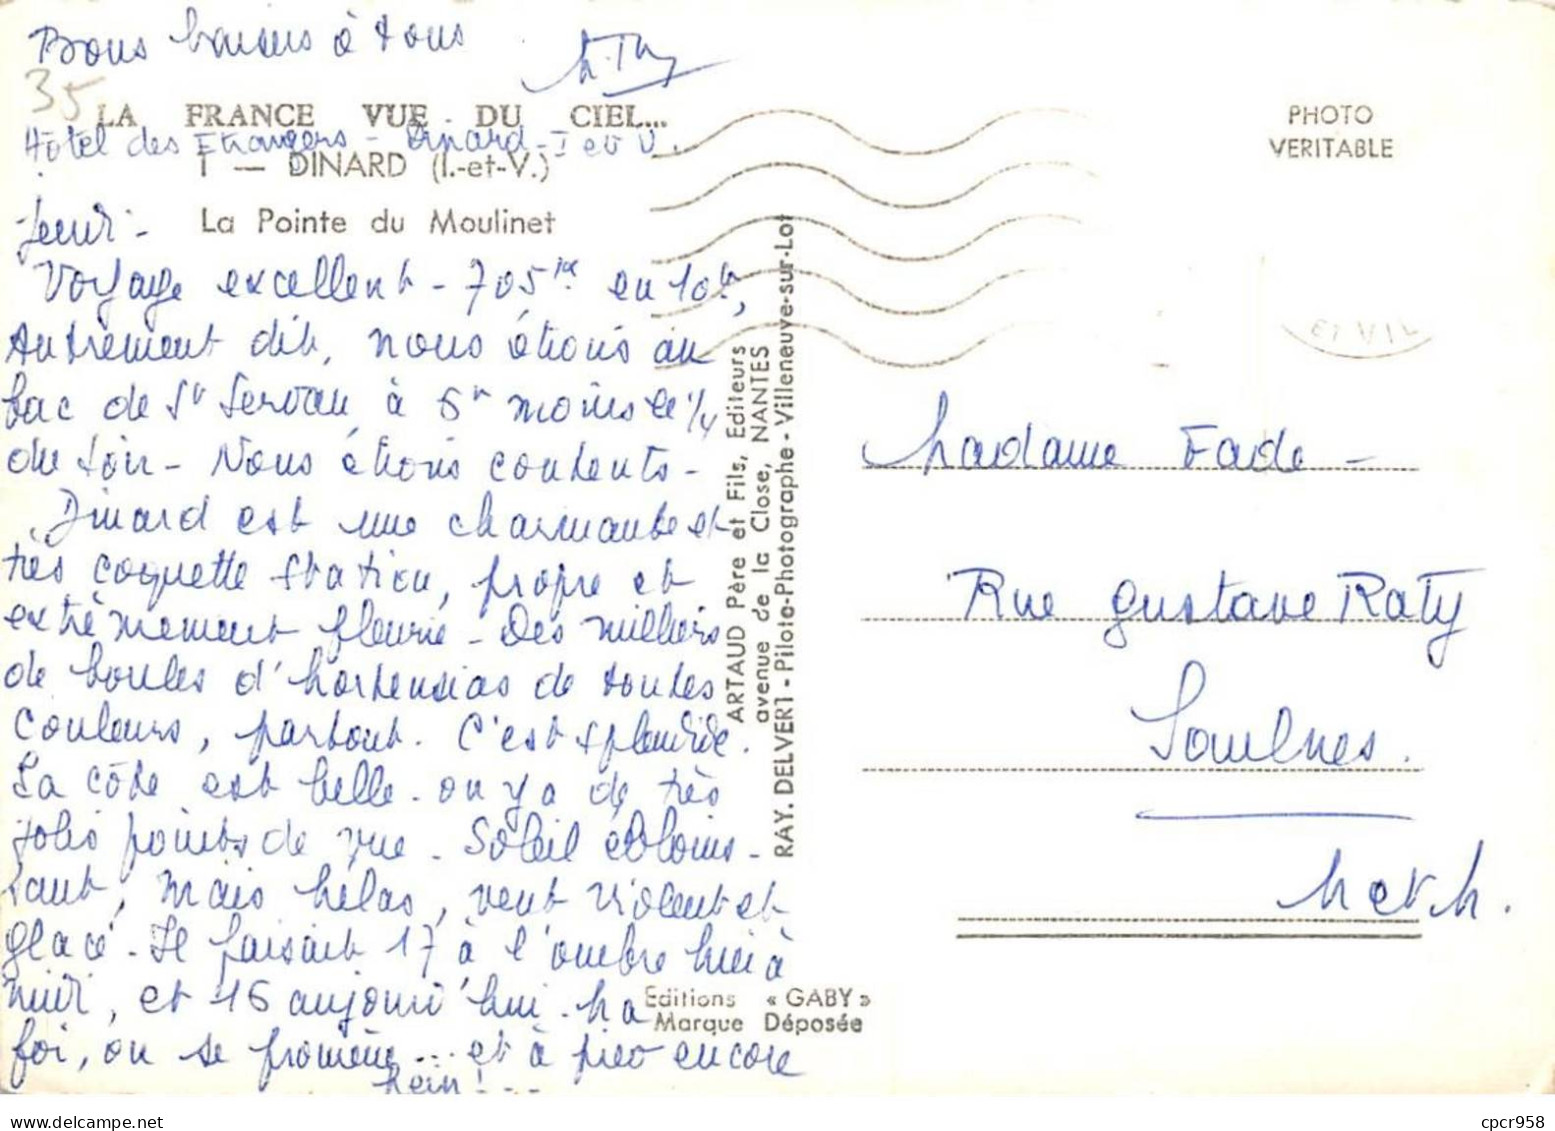 Bons baisers à tous
35
LA FRANCE VUE DU CIEL...
Hôtel des Etrangers - Dinard - I et V.
1 — DINARD (I.-et-V.)
La Pointe du Moulinet
Jeudi -
Voyage excellent - 705 en 10h,
Autrement dit, nous étions au
bac de St Servan à 5h moins le 1/4
du soir - Nous étions contents -
Dinard est une charmante et
très coquette station, propre et
extrêmement fleurie - Des milliers
de boules d'hortensias de toutes
couleurs, partout. C'est splendide.
La côte est belle - on y a de très
jolis points de vue - Soleil éblouis-
sant, mais hélas, vent violent et
glacé - Il faisait 17 à l'ombre hier à
midi, et 16 aujourd'hui. Ma
foi, on se promène ... et à pied encore
hein ! ...
PHOTO
VERITABLE
ARTAUD Père et Fils, Editeurs
avenue de la Close, NANTES
RAY. DELVERT - Pilote-Photographe - Villeneuve-sur-Lot
Madame Fade -
Rue Gustave Raty
Saulnes.
M et M.
Editions « GABY »
Marque Déposée
cpcr958